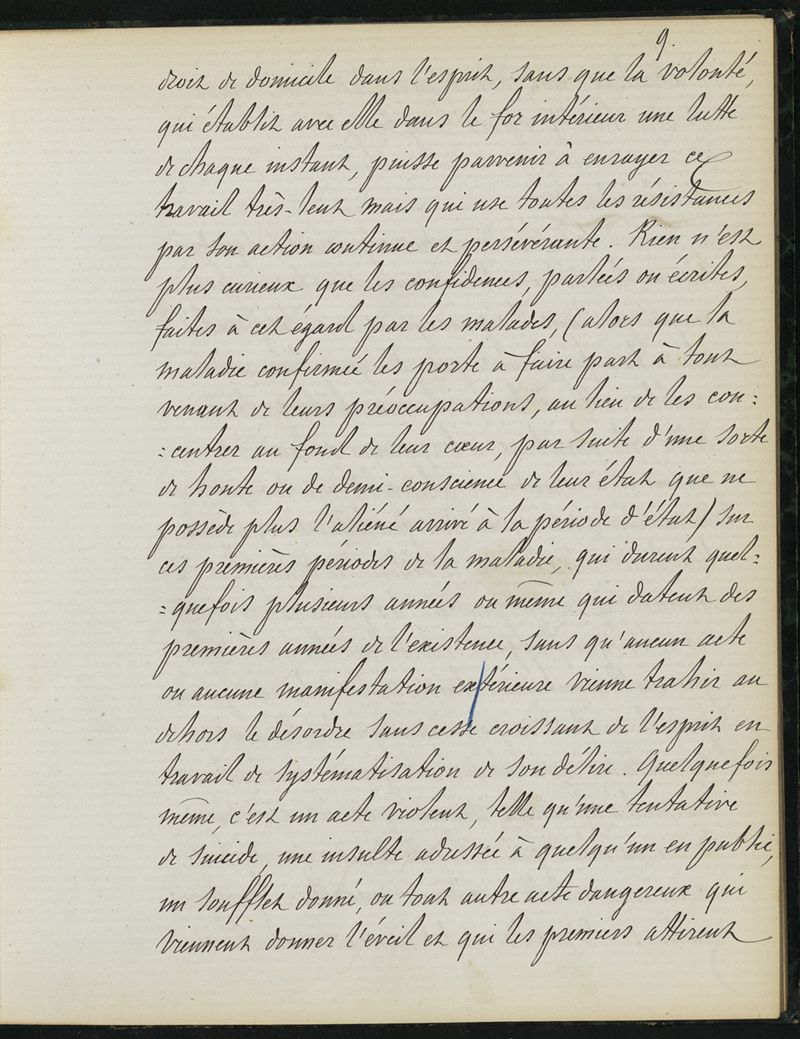 9.
droit de domicile dans l'esprit, sans que la volonté,
qui établit avec elle dans le for intérieur une lutte
de chaque instant, puisse parvenir à enrayer ce
travail très-lent mais qui use toutes les résistances
par son action continue et persévérante. Rien n'est
plus curieux que les confidences, parlées ou écrites,
faites à cet égard par les malades, (alors que la
maladie confirmée les porte à faire part à tout
venant de leurs préoccupations, au lieu de les con:
:centrer au fond de leur cœur, par suite d'une sorte
de honte ou de demi-conscience de leur état que ne
possède plus l'aliéné arrivé à la période d'état) sur
ces premières périodes de la maladie, qui durent quel:
:quefois plusieurs années ou même qui datent des
premières années de l'existence, sans qu'aucun acte
ou aucune manifestation extérieure vienne trahir au
dehors le désordre sans cesse croissant de l'esprit en
travail de systématisation de son délire. Quelquefois
même, c'est un acte violent, telle qu'une tentative
de suicide, une insulte adressée à quelqu'un en public,
un soufflet donné, ou tout autre acte dangereux qui
viennent donner l'éveil et qui les premiers attirent